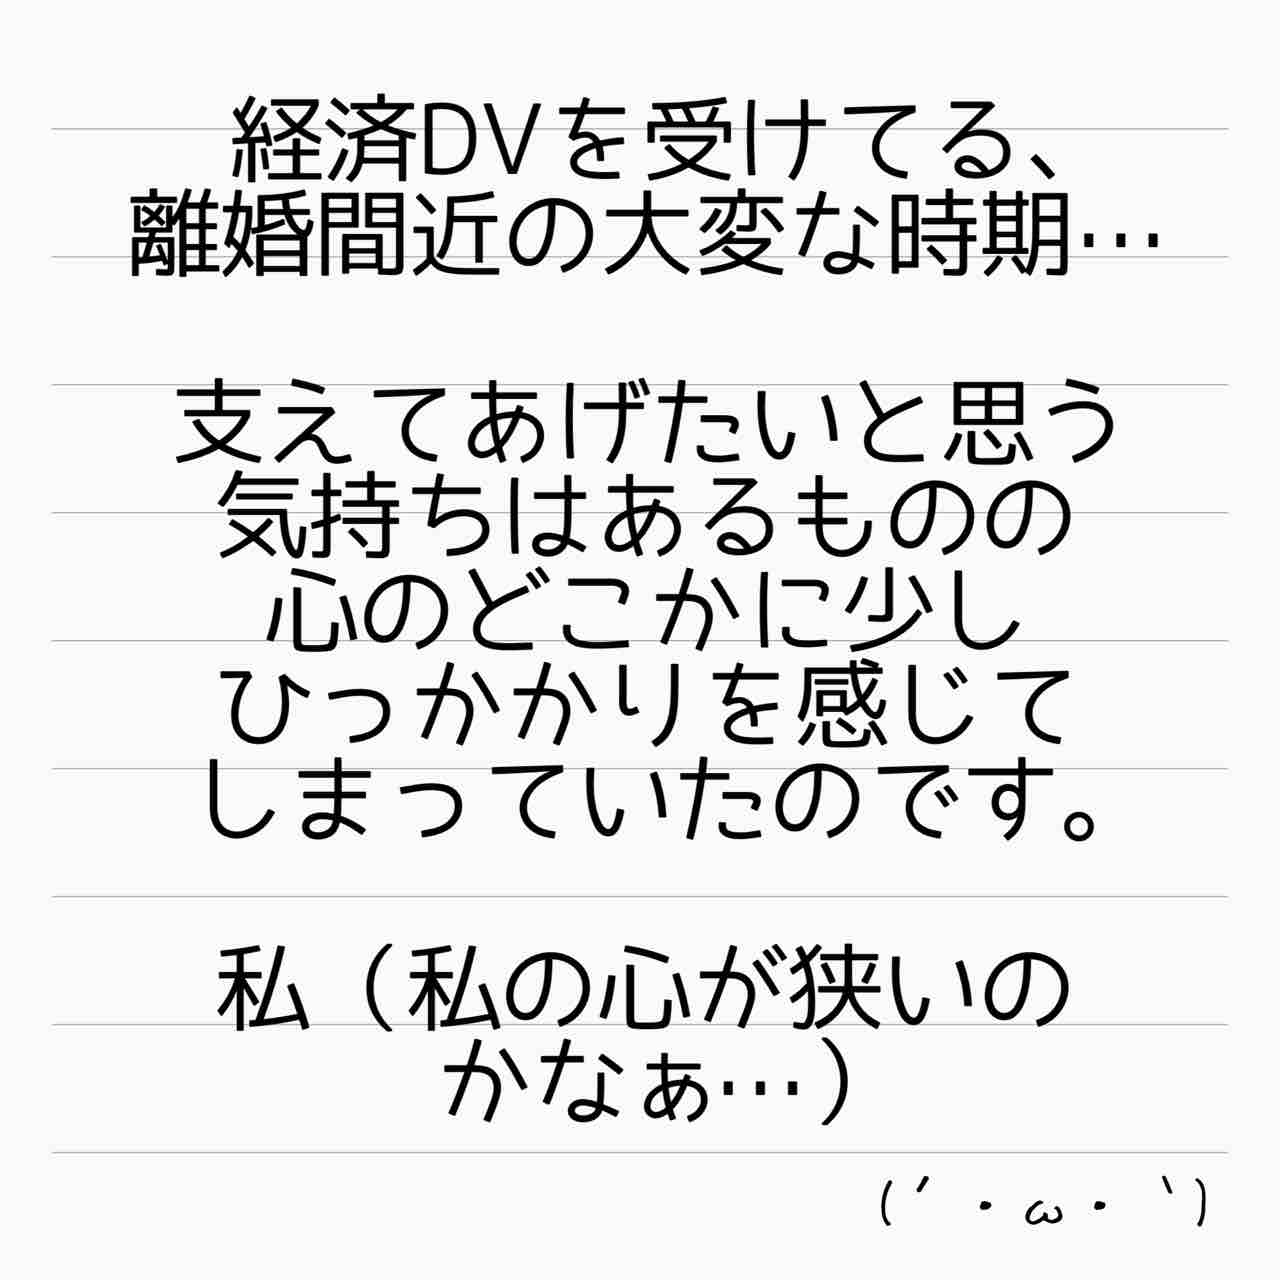 経済DVを受けてる、
離婚間近の大変な時期…
支えてあげたいと思う
気持ちはあるものの
心のどこかに少し
ひっかかりを感じて
しまっていたのです。
私（私の心が狭いの
かなぁ…）
(´・ω・｀)